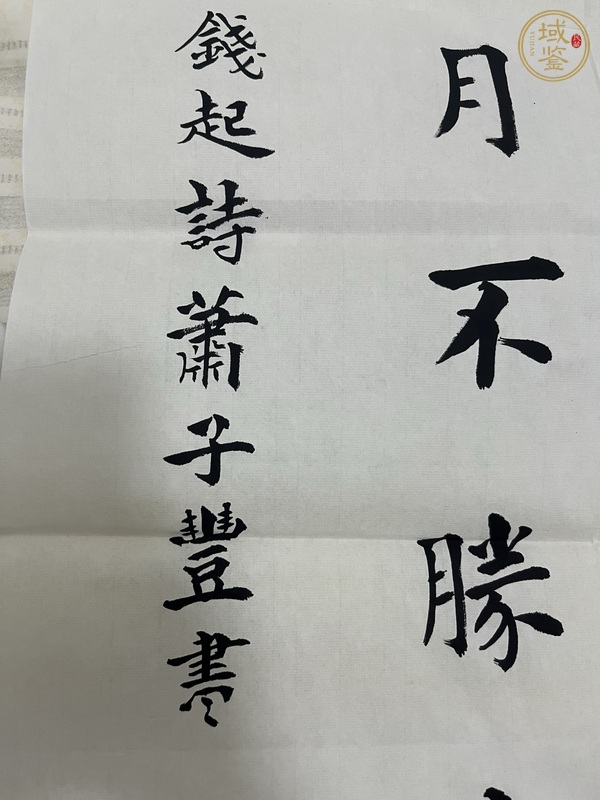 月不勝
錢起詩蕭子豐書
域鉴